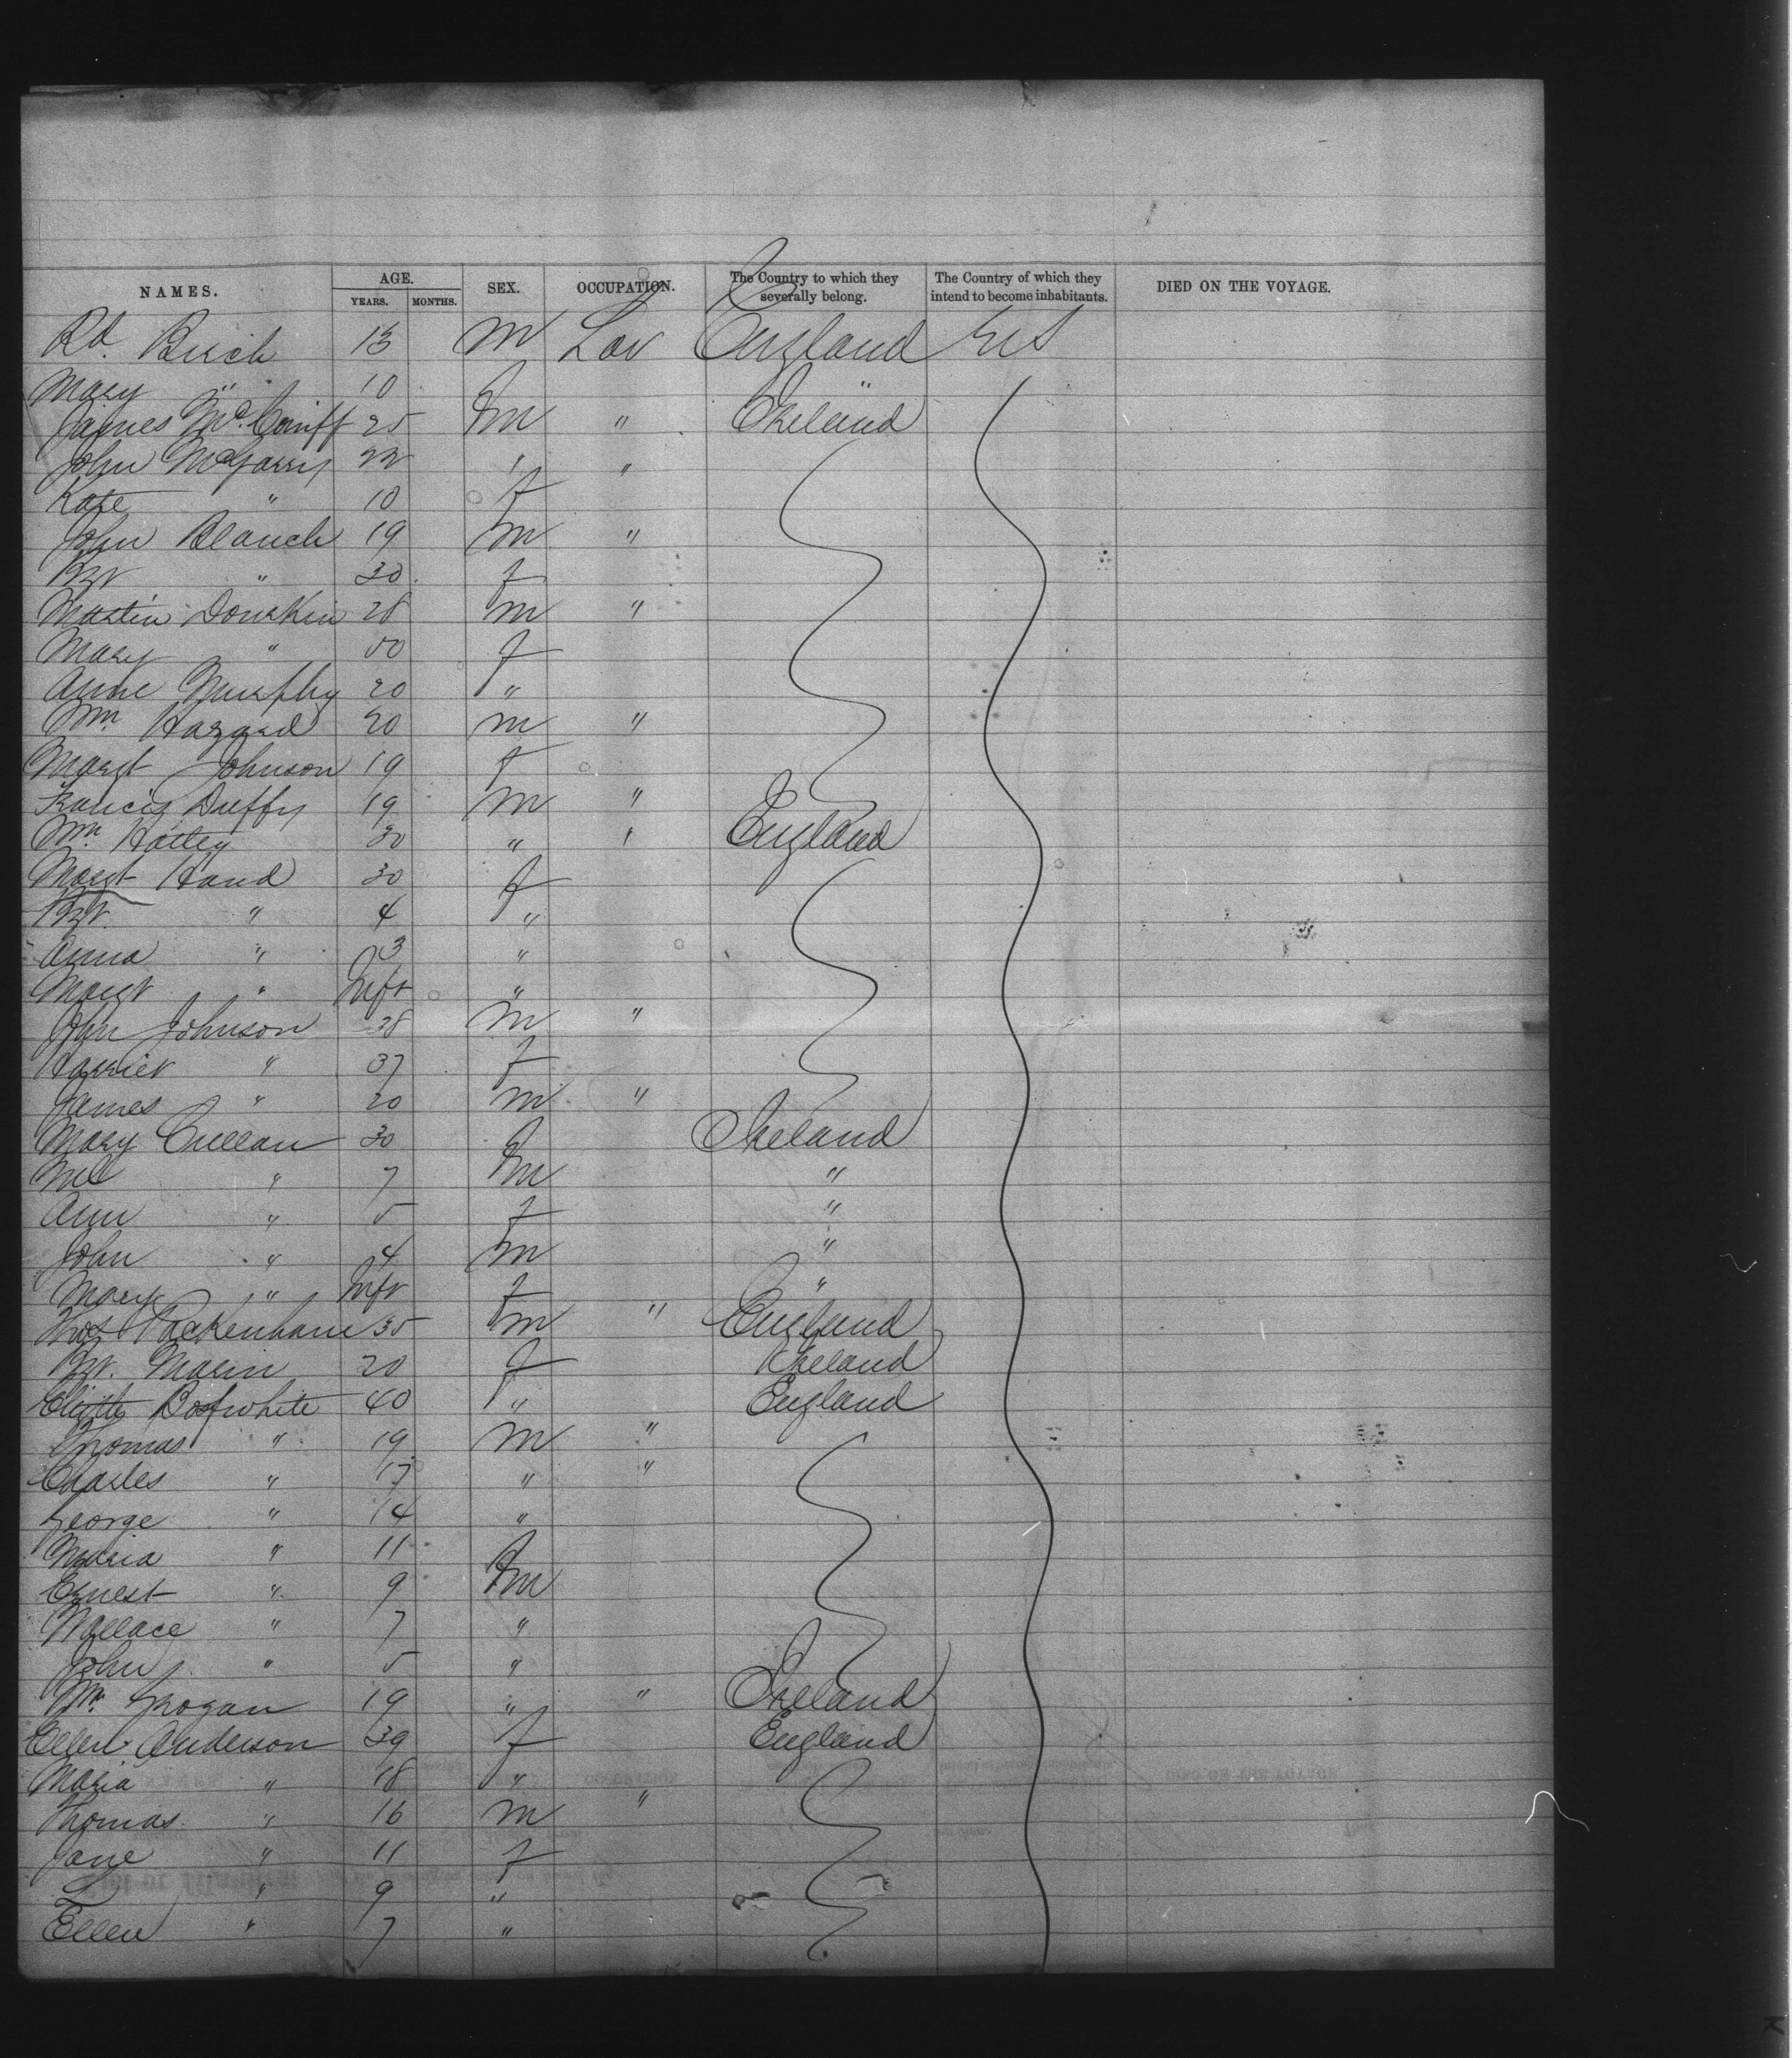 NAMES. AGE. YEARS. MONTHS. SEX. OCCUPATION. The Country to which they severally belong. The Country of which they intend to become inhabitants. DIED ON THE VOYAGE.
Rd. Birch 13 m Lav England US
Mary " 10 "
James McCaniff 25 m " Ireland
John McGarry 22 " "
Kate " 10 f
John Blanch 19 m "
Bgt " 30 f
Martin Donskin 28 m "
Mary " 50 f
Anne Murphy 20 "
Wm. Hazard 20 m "
Margt Johnson 19 f
Francis Duffy 19 m "
Wm. Hatley 30 " " England
Margt Hand 30 f
Bgt. " 4 "
Anna " 3 "
Margt " Inft "
John Johnson 38 m "
Harriet " 37 f
James " 20 m "
Mary Cullan 30 f Ireland
Ml " 7 m "
Ann " 5 f "
John " 4 m "
Mary " Inft f "
Thos Packenham 35 m " England
Bgt. Marin 20 f Ireland
40 " England
Thomas " 19 m "
Charles " 17 " "
George " 14 "
Maria " 11 f
Ernest " 9 m
Wallace " 7 "
John " 5 "
Wm. Grogan 19 " " Ireland
Ellen Anderson 39 f England
Maria " 18 "
Thomas " 16 m "
Jane " 11 f
" 9 "
Ellen " 7 "